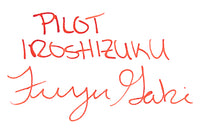 PILOT
IROSHIZUKU
Fuyu Gaki